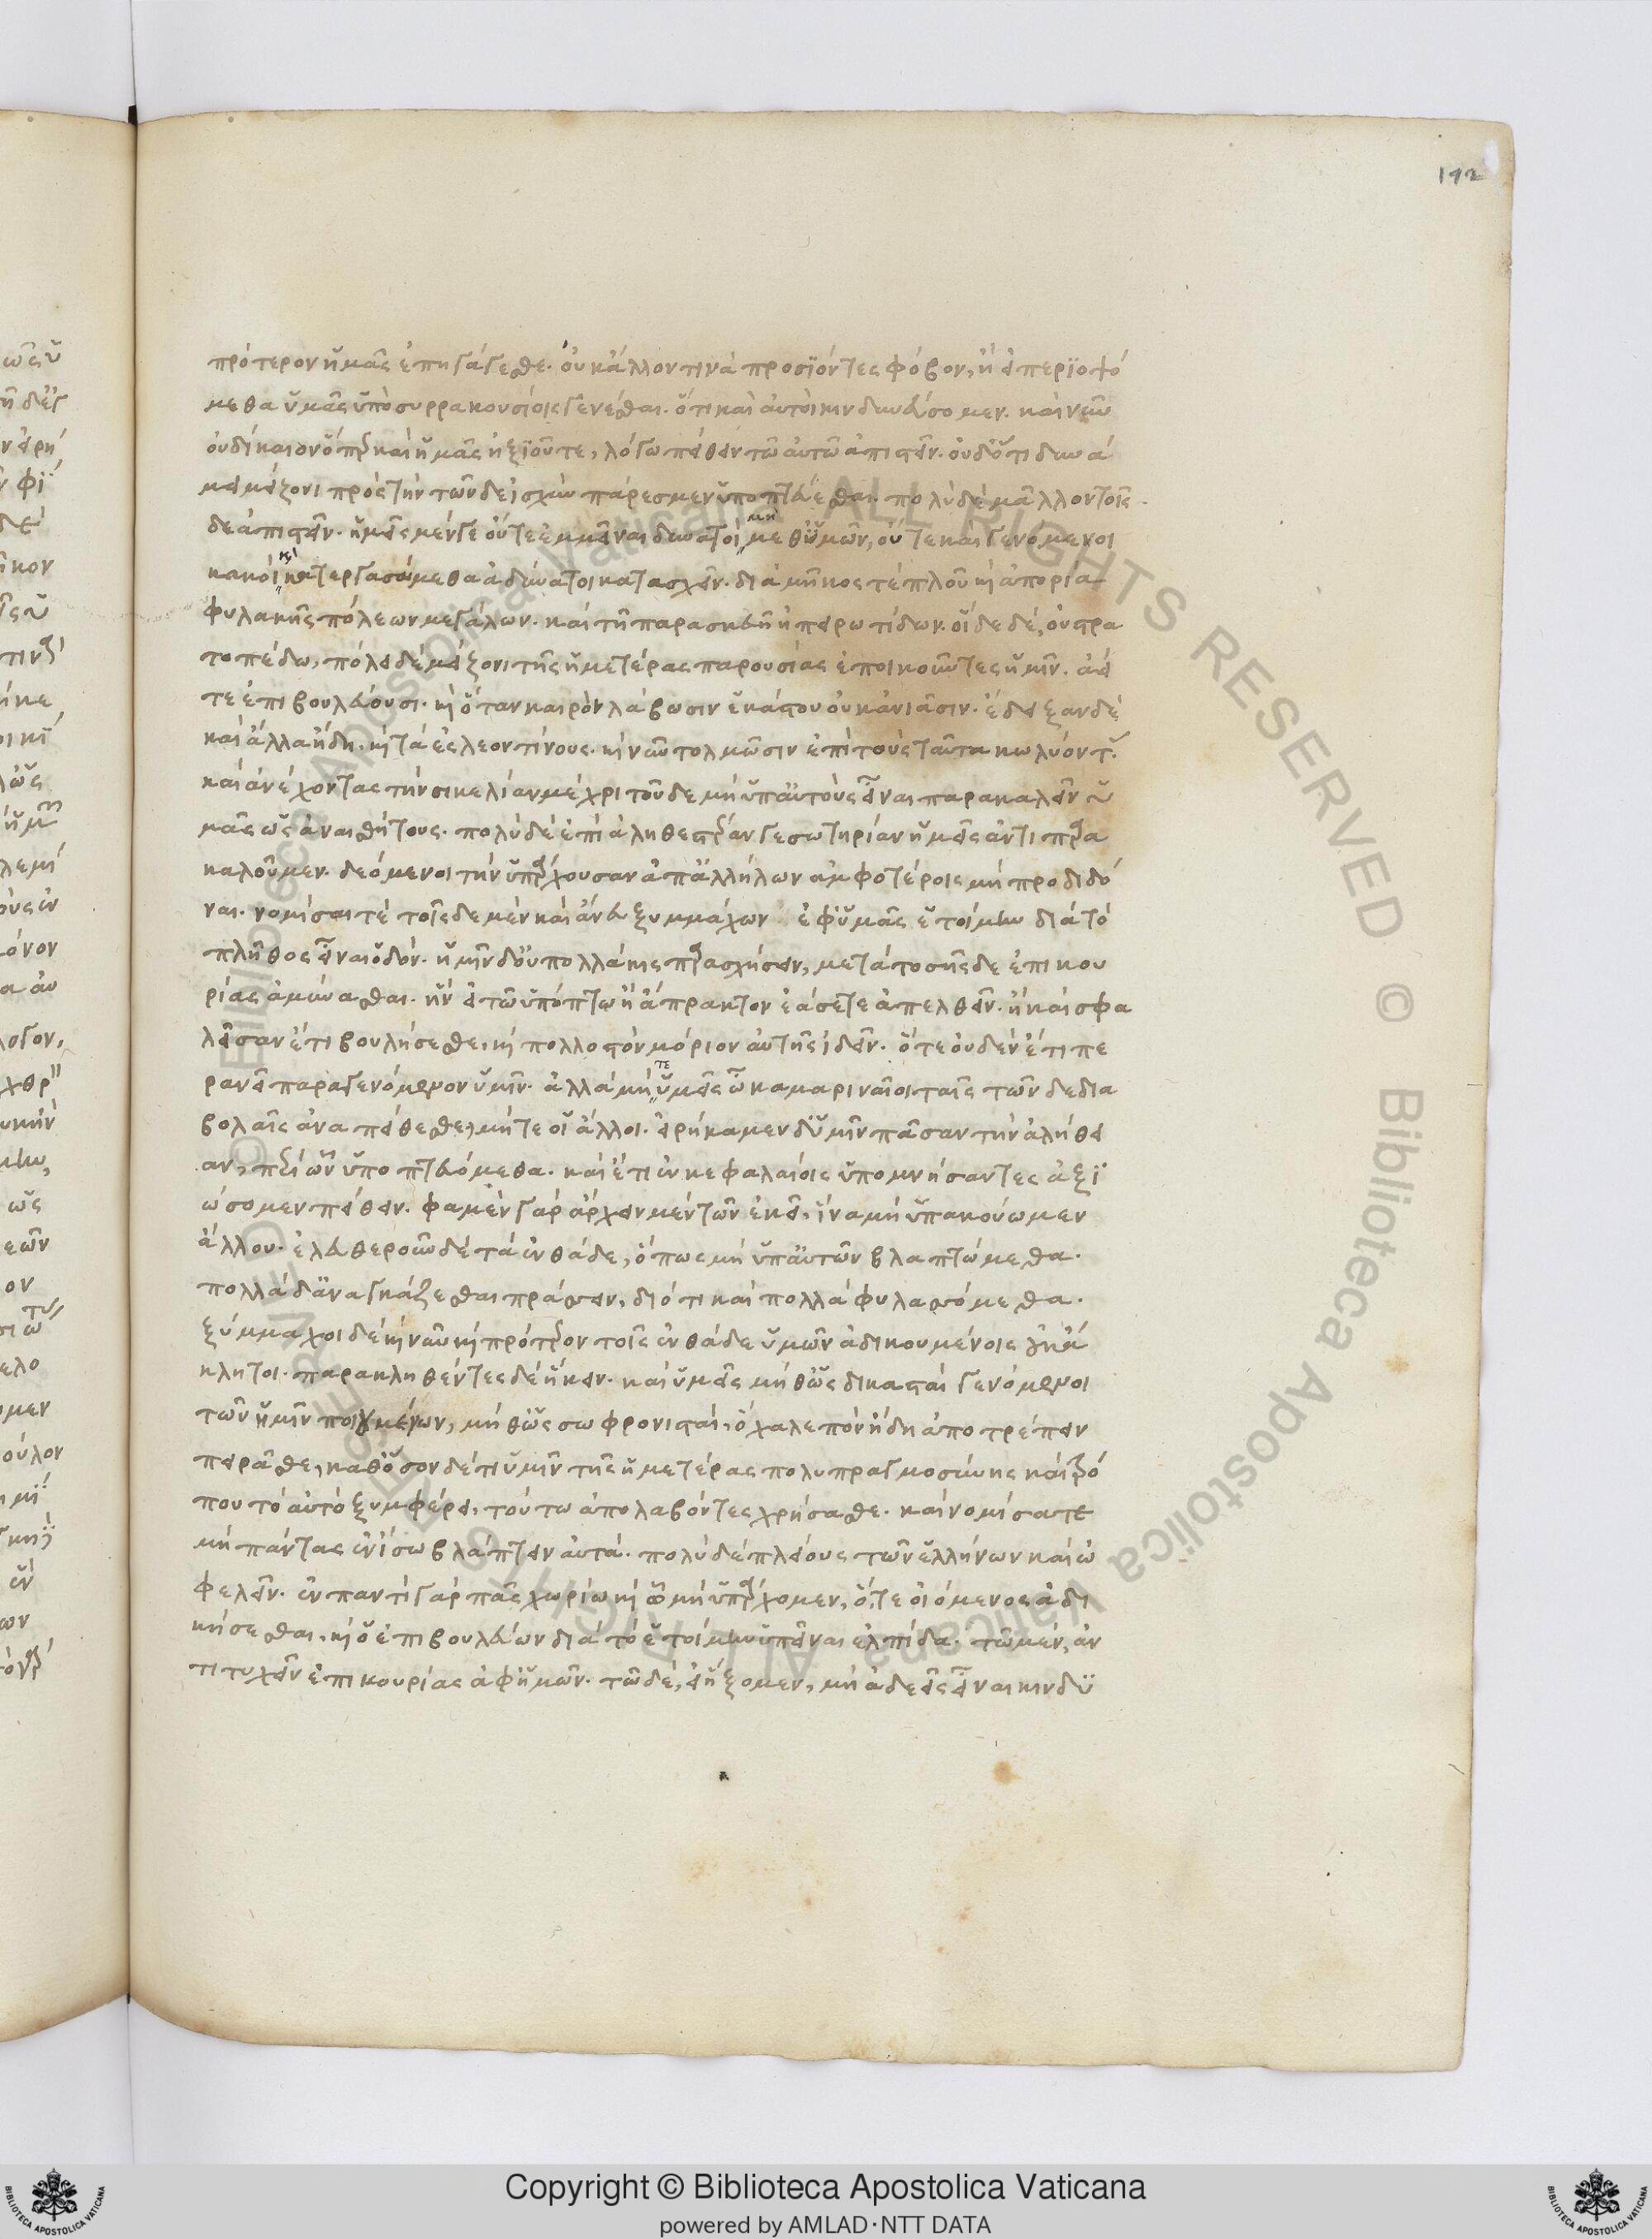 192
πρότερον ἡμᾶς ἐπηγάγεσθε. οὐκ ἄλλον τινὰ προσϊόντες φόβον, ἢ εἰ περϊοψό
μεθα ὑμᾶς ὑπὸ συρρακουσίοις γενέσθαι. ὅτι καὶ αὐτοὶ κινδυνεύσομεν. καὶ νῦν
οὐ δίκαιον ὧπερ καὶ ἡμᾶς ἠξϊοῦτε, λόγω πείθειν τῶ αὐτῶ ἀπιστεῖν. οὐδ' ὅτι δυνά
μει μείζονι πρὸς τὴν τῶνδε ἰσχὺν πάρεσμεν ὑποπτεύεσθαι. πολὺ δὲ μᾶλλον τοῖς
δε ἀπιστεῖν. ἡμεῖς μέν γε οὔτε ἐμμεῖναι δυνατοὶ μὴ μεθ' ὑμῶν, οὔτε καὶ γενόμενοι
κακοὶ καὶ κατεργασώμεθα ἀδύνατοι κατασχεῖν. διὰ μῆκος τὲ πλοῦ καὶ ἀπορία
φυλακῆς πόλεων μεγάλων. καὶ τῆ παρασκευῆ ἠπειρωτίδων. οἵδε δὲ, οὐ στρα
τοπέδω, πόλει δὲ μείζονι τῆς ἡμετέρας παρουσίας ἐποικοῦντες ὑμῖν. ἀεί
τε ἐπιβουλεύουσι. καὶ ὅταν καιρὸν λάβωσιν ἑκάστου οὐκ ἀνιᾶσιν. ἔδειξαν δὲ
καὶ ἄλλα ἤδη. καὶ τὰ ἐς λεοντίνους. καὶ νῦν τολμῶσιν ἐπὶ τοὺς ταῦτα κωλύοντας
καὶ ἀνέχοντας τὴν σικελίαν μέχρι τοῦδε μὴ ὑπ' αὐτοὺς εἶναι παρακαλεῖν ὑ
μᾶς ὡς ἀναισθήτους. πολὺ δὲ ἐπὶ ἀληθεστέραν γε σωτηρίαν ἡμεῖς ἀντιπαρα
καλοῦμεν. δεόμενοι τὴν ὑπάρχουσαν ἀπ' ἀλλήλων ἀμφοτέροις μὴ προδιδό
ναι. νομίσαι τὲ τοῖσδε μὲν καὶ ἄνευ ξυμμάχων ἐφ' ὑμᾶς ἑτοίμην διὰ τὸ
πλῆθος εἶναι ὁδόν. ἡμῖν δ' οὐ πολλάκις παρασχήσειν, μετὰ τοσῆσδε ἐπικου
ρίας ἀμύνασθαι. ἣν εἰ τῶ ὑπόπτω ἢ ἄπρακτον ἐάσετε ἀπελθεῖν. ἢ καὶ σφα
λεῖσαν ἔτι βουλήσεσθε, καὶ πολλοστὸν μόριον αὐτῆς ἰδεῖν. ὅτε οὐδὲν ἔτι πε
ρανεῖ παραγενόμενον ὑμῖν. ἀλλὰ μήτε ὑμεῖς ὦ καμαριναῖοι ταῖς τῶνδε δια
βολαῖς ἀναπείθεσθε, μήτε οἱ ἄλλοι. εἰρήκαμεν δ' ὑμῖν πᾶσαν τὴν ἀλήθει
αν, περὶ ὧν ὑποπτευόμεθα. καὶ ἔτι ἐν κεφαλαίοις ὑπομνήσαντες ἀξϊ
ώσομεν πείθειν. φαμὲν γὰρ ἄρχειν μὲν τῶν ἐκεῖ, ἵνα μὴ ὑπακούωμεν
ἄλλου. ἐλευθεροῦν δὲ τὰ ἐνθάδε, ὅπως μὴ ὑπ' αὐτῶν βλαπτώμεθα.
πολλὰ δ' ἀναγκάζεσθαι πράσσειν, διότι καὶ πολλὰ φυλασσόμεθα.
ξύμμαχοι δὲ καὶ νῦν καὶ πρότερον τοῖς ἐνθάδε ὑμῶν ἀδικουμένοις οὐκ ἄ
κλητοι. παρακληθέντες δὲ ἥκειν. καὶ ὑμεῖς μὴθ' ὡς δικασταὶ γενόμενοι
τῶν ἡμῖν ποιουμένων, μὴθ' ὡς σωφρονισταὶ, ὃ χαλεπὸν ἤδη ἀποτρέπειν
πειρᾶσθε, καθ' ὅσον δέ τι ὑμῖν τῆς ἡμετέρας πολυπραγμοσύνης καὶ τρό
που τὸ αὐτὸ ξυμφέρει, τούτω ἀπολαβόντες χρήσασθε. καὶ νομίσατε
μὴ πάντας ἐν ἴσω βλάπτειν αὐτά. πολὺ δὲ πλείους τῶν ἑλλήνων καὶ ὠ
φελεῖν. ἐν παντὶ γὰρ πᾶς χωρίω καὶ ὧ μὴ ὑπάρχομεν, ὅ,τε οἰόμενος ἀδι
κήσεσθαι, καὶ ὁ ἐπιβουλεύων διὰ τὸ ἑτοίμην ὑπεῖναι ἐλπίδα. τῶ μὲν, ἀν
τιτυχεῖν ἐπικουρίας ἀφ' ἡμῶν. τῶ δὲ, εἰ ἥξομεν, μὴ ἀδεεῖς εἶναι κινδυ
Copyright © Biblioteca Apostolica Vaticana
powered by AMLAD·NTT DATA